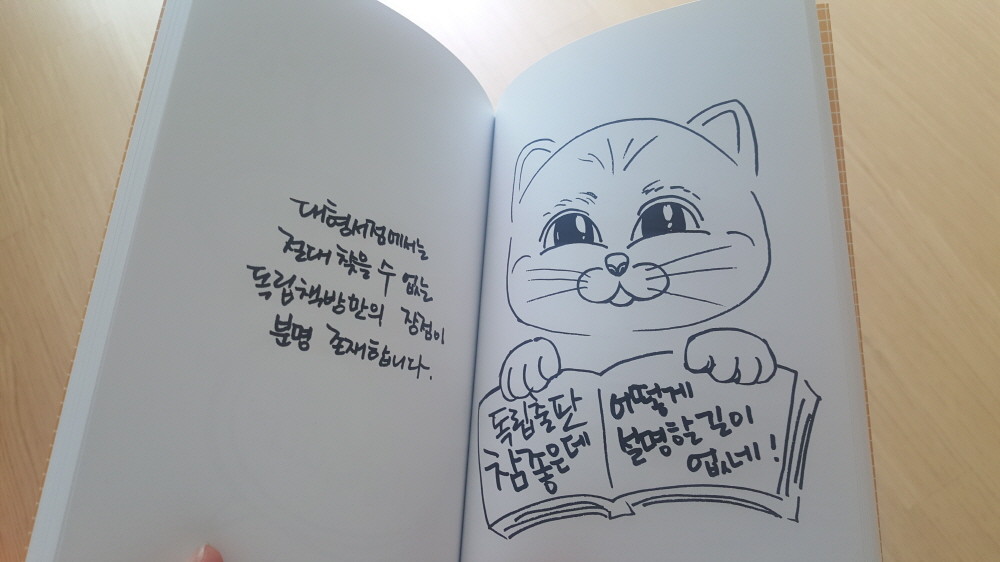 대형서점에서는
절대 찾을 수 없는
독립책방만의 장점이
분명 존재합니다.
독립출판
참 좋은데
어떻게
설명할 길이
없네!